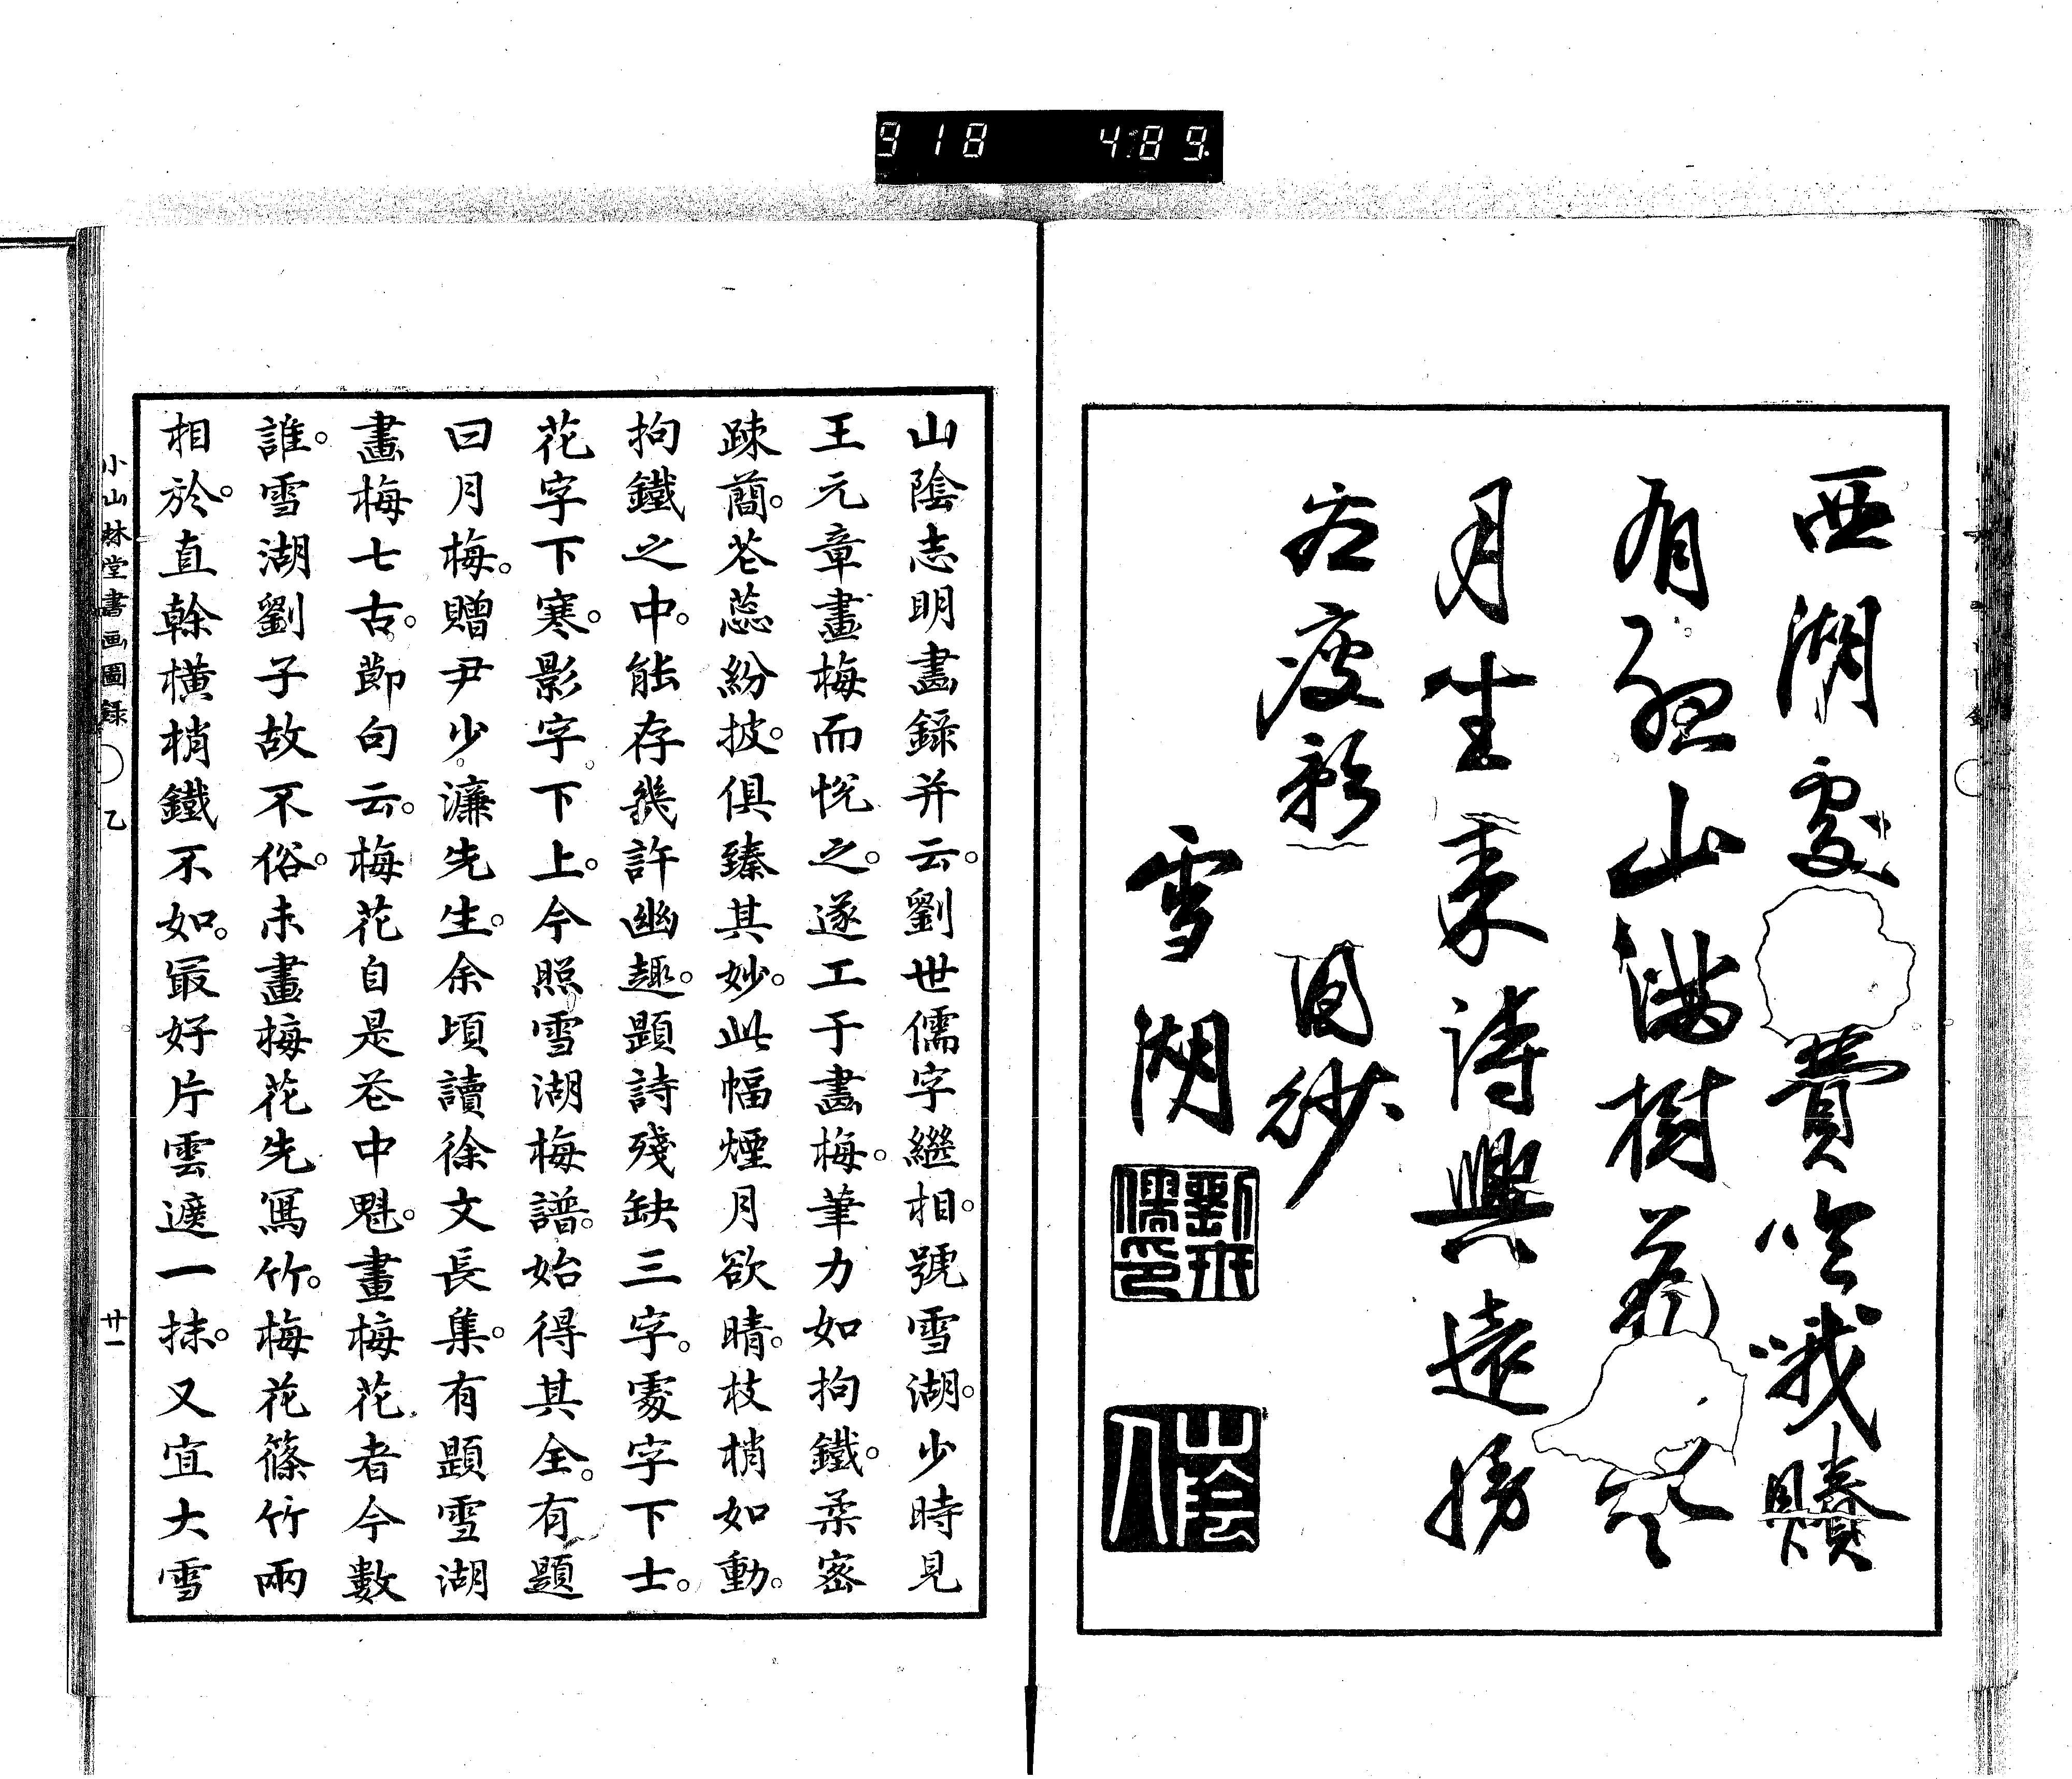 918 4:89.
西湖處
費吟哦賸
有孤山滿樹
花
影
月坐來詩興遠
回
雪湖
劉世儒印
山陰人
山陰志明畫錄并云。劉世儒字繼相。號雪湖。少時見
王元章畫梅而悅之。遂工于畫梅。筆力如拘鐵。柔密
踈蕳。花蕊紛披。俱臻其妙。此幅煙月欲晴。枝梢如動。
拘鐵之中。能存幾許幽趣。題詩殘缺三字。處字下士。
花字下寒。影字下上。今照雪湖梅譜。始得其全。有題
曰月梅。贈尹少濂先生。余頃讀徐文長集。有題雪湖
畫梅七古。節句云。梅花自是花中魁。畫梅花者今數
誰。雪湖劉子故不俗。未畫梅花先寫竹。梅花篠竹兩
相於。直幹橫梢鐵不如。最好片雲遮一抹。又宜大雪
小山林堂書画圖録 乙 廿一